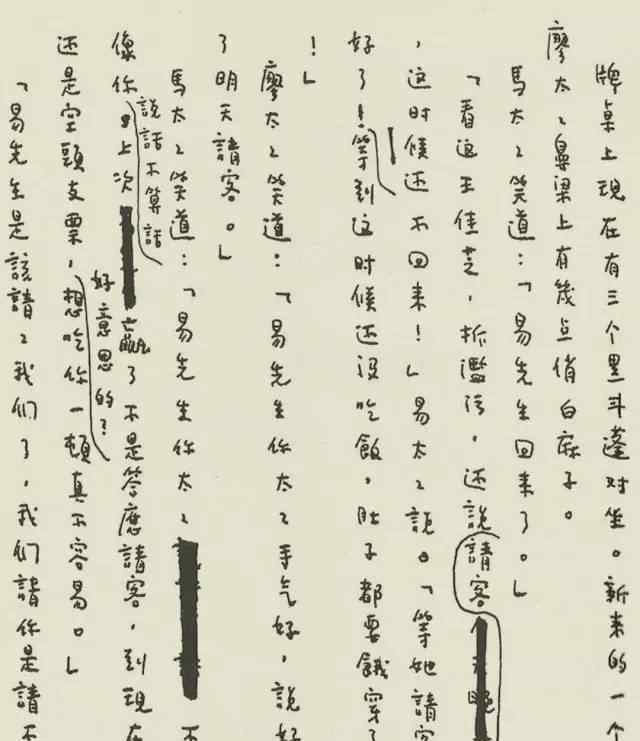 牌桌上现在有三个黑斗蓬对坐。新来的一个
廖太々鼻梁上有幾点俏白麻子。
馬太々笑道：「易先生回来了。」
「看这王佳芝，抓濫污，还說請客
，这时候还不回来！」易太々說。「等她請客
好了！等到这时候还没吃飯，肚子都要餓穿了
！」
廖太々笑道：「易先生你太々手气好，說好
了明天請客。」
馬太々笑道：「易先生你太々 不
說話不算話
像你上次赢了不是答應請客，到現在
好意思的？
还是空頭支票，想吃你一頓真不容易。」
「易先生是該請々我们了，我们請你是請不